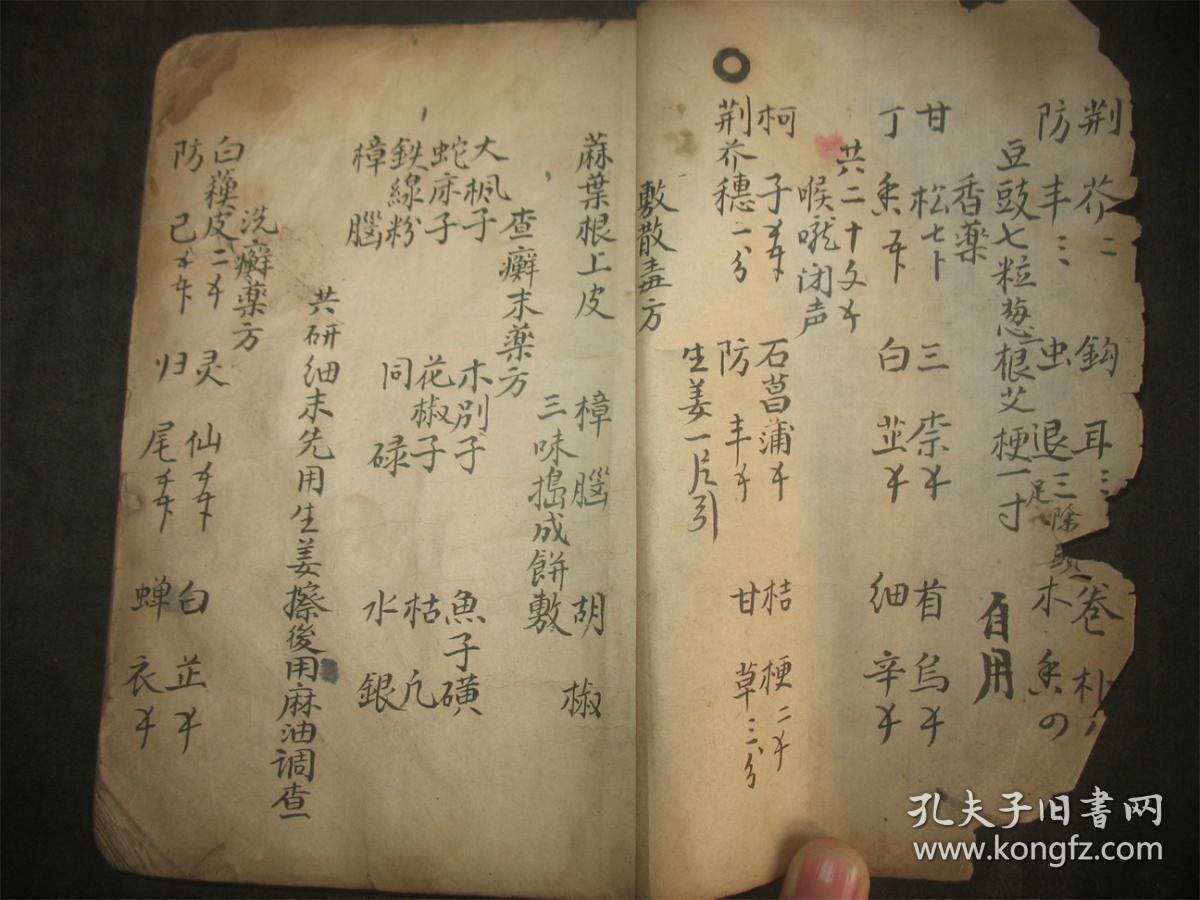 荆芥二 鈎耳三 卷朴
防丰三 虫退三除頭足 木香
豆豉七粒葱根艾梗一寸 自用
香藥
甘松七卜 三柰 首烏
丁香 白芷 细辛
共二十文
喉嚨闭声
柯子 石菖蒲 桔梗二
荆芥穗一分 防丰 甘草三分
生姜一片引
敷散毒方
蔴葉根上皮 樟腦 胡椒
三味搗成餅敷
查癬末藥方
大楓子 木別子 魚子磺
蛇床子 花椒子 枯凡
鉄線粉 同碌 水銀
樟腦
共研细末先用生姜擦後用麻油调查
洗癬藥方
白蘚皮二 灵仙 白芷
防己 归尾 蝉衣
孔夫子旧书网
www.kongfz.com